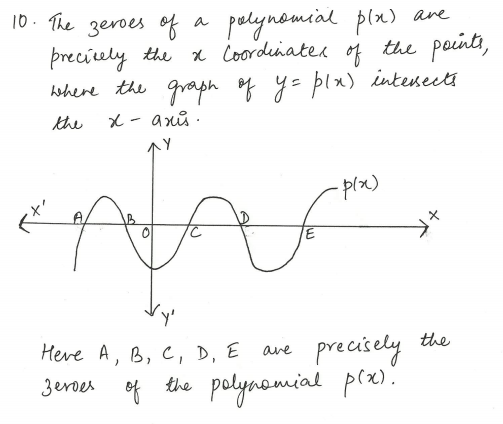 10. The zeroes of a polynomial p(x) are
precisely the x Coordinates of the points,
where the graph of y = p(x) intersects
the x-axis.
Y
p(x)
X' A B O C D E X
Y'
Here A, B, C, D, E are precisely the
zeroes of the polynomial p(x).